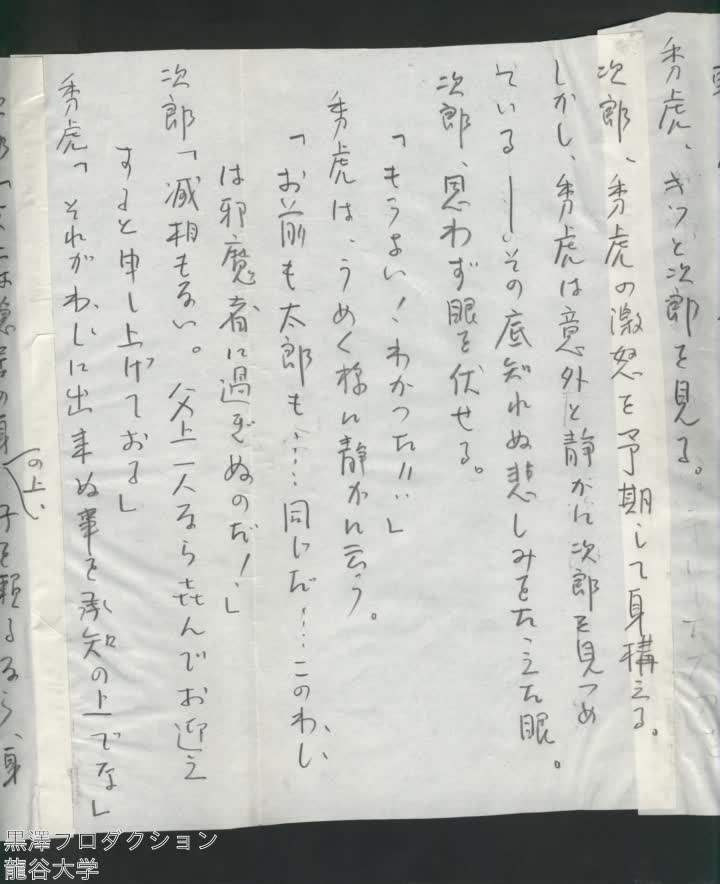 秀虎、キッと次郎を見る。
次郎、秀虎の激怒を予期して身構える。
しかし、秀虎は意外と静かに次郎を見つめ
ている——その底知れぬ悲しみをたゝえた眼。
次郎、思わず眼を伏せる。
「もうよい！わかった!!」
秀虎は、うめく様に静かに云う。
「お前も太郎も……同じだ……このわし
は邪魔者に過ぎぬのだ！」
次郎「滅相もない。父上一人なら喜んでお迎え
すると申し上げておる」
秀虎「それがわしに出来ぬ事を承知の上でな」
の上、
黒澤プロダクション
龍谷大学